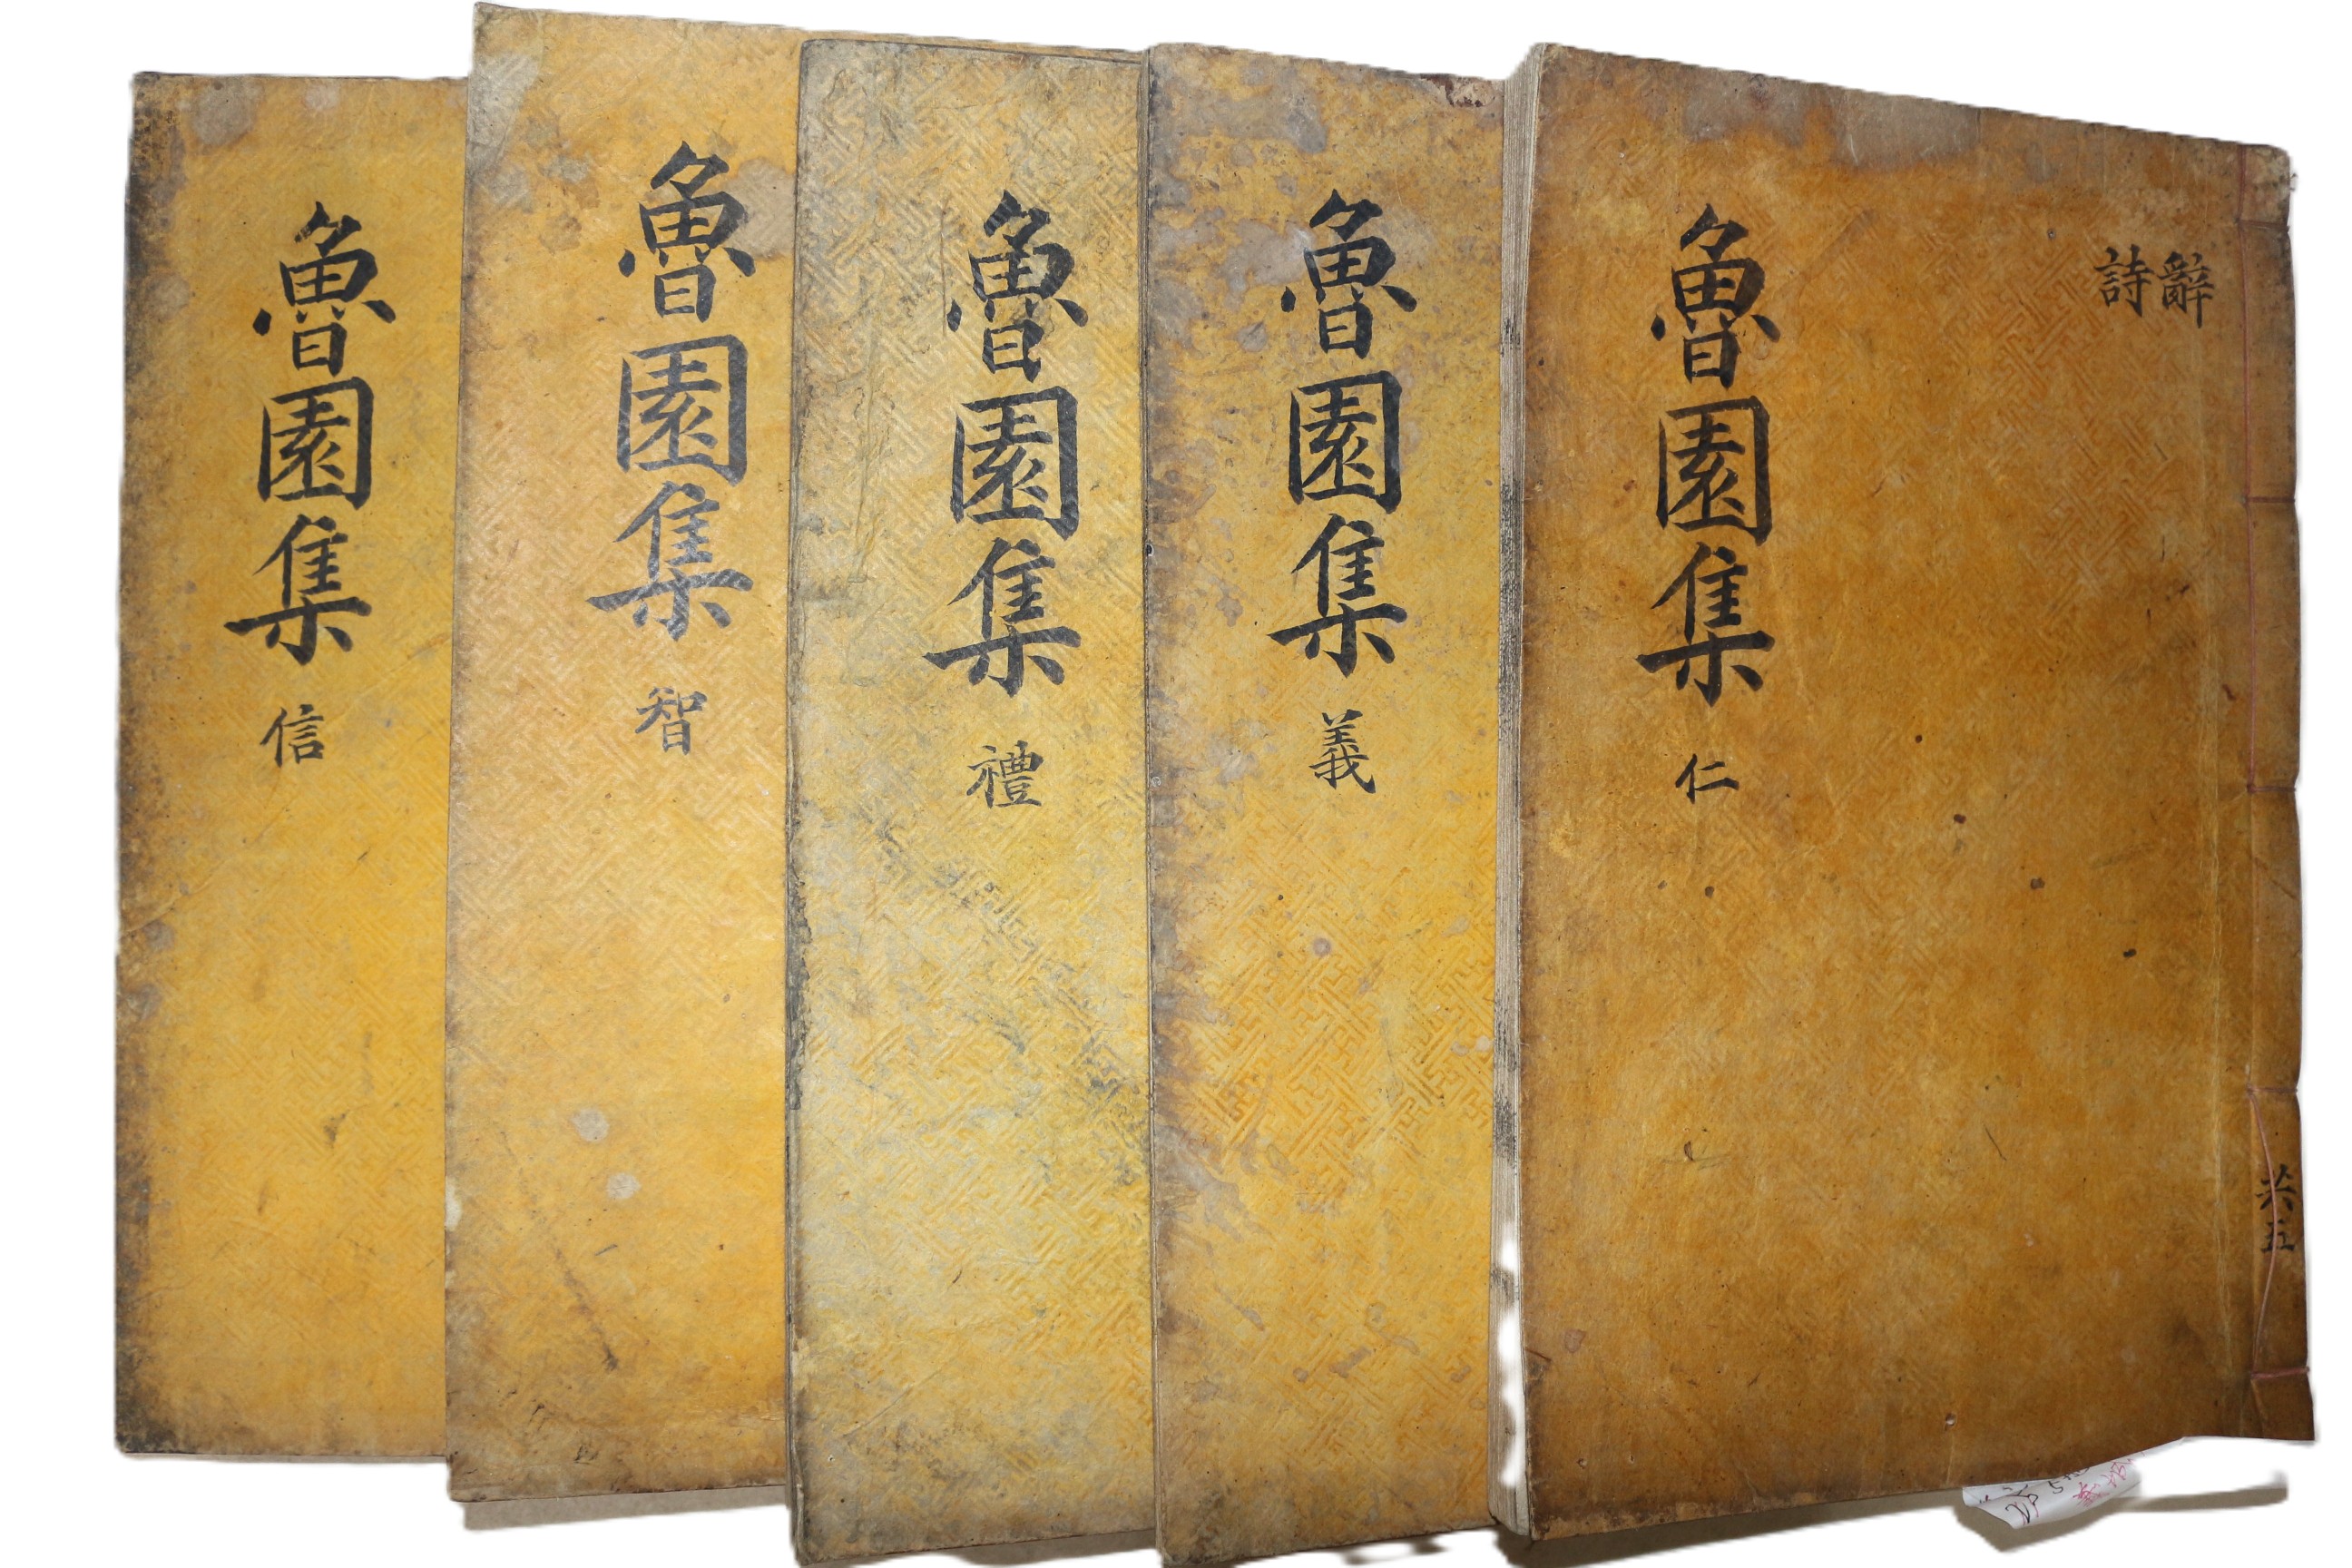 辭
詩
魯園集 仁
共五
魯園集 義
魯園集 禮
魯園集 智
魯園集 信